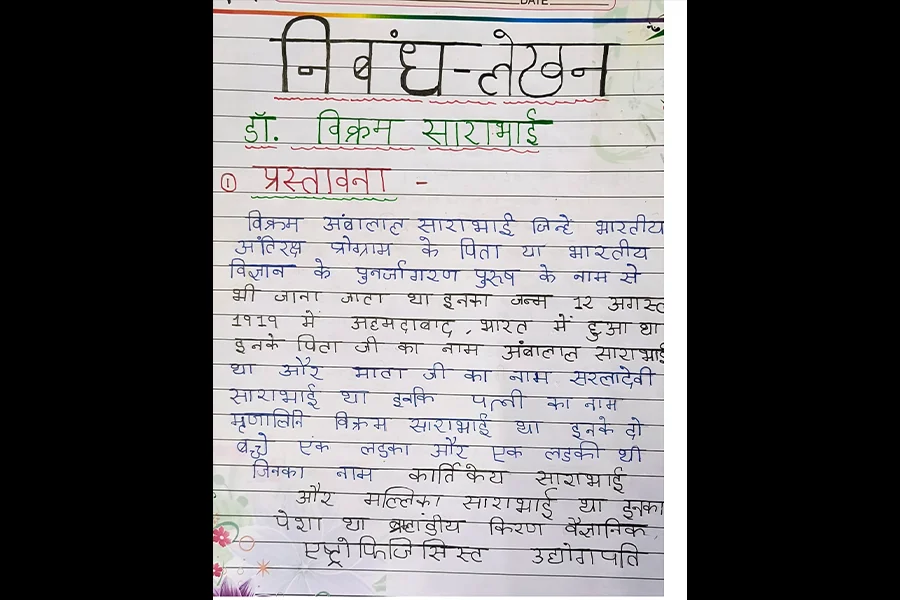 DATE
निबंध-लेखन
डॉ. विक्रम साराभाई
① प्रस्तावना -
विक्रम अंबालाल साराभाई जिन्हे भारतीय
अंतिरक्ष प्रोग्राम के पिता या भारतीय
विज्ञान के पुनर्जागरण पुरुष के नाम से
भी जाना जाता था इनका जन्म 12 अगस्त
1919 में अहमदाबाद, भारत में हुआ था
इनके पिता जी का नाम अंबालाल साराभाई
था और माता जी का नाम सरलादेवी
साराभाई था इनकि पत्नी का नाम
मृणालिनि विक्रम साराभाई था इनके दो
बच्चे एक लड़का और एक लड़की थी
जिनका नाम कार्तिकेय साराभाई
और मल्लिका साराभाई था इनका
पेशा था ब्रह्मांडीय किरण वैज्ञानिक
एष्ट्रोफिजिसिस्ट उद्योगपति